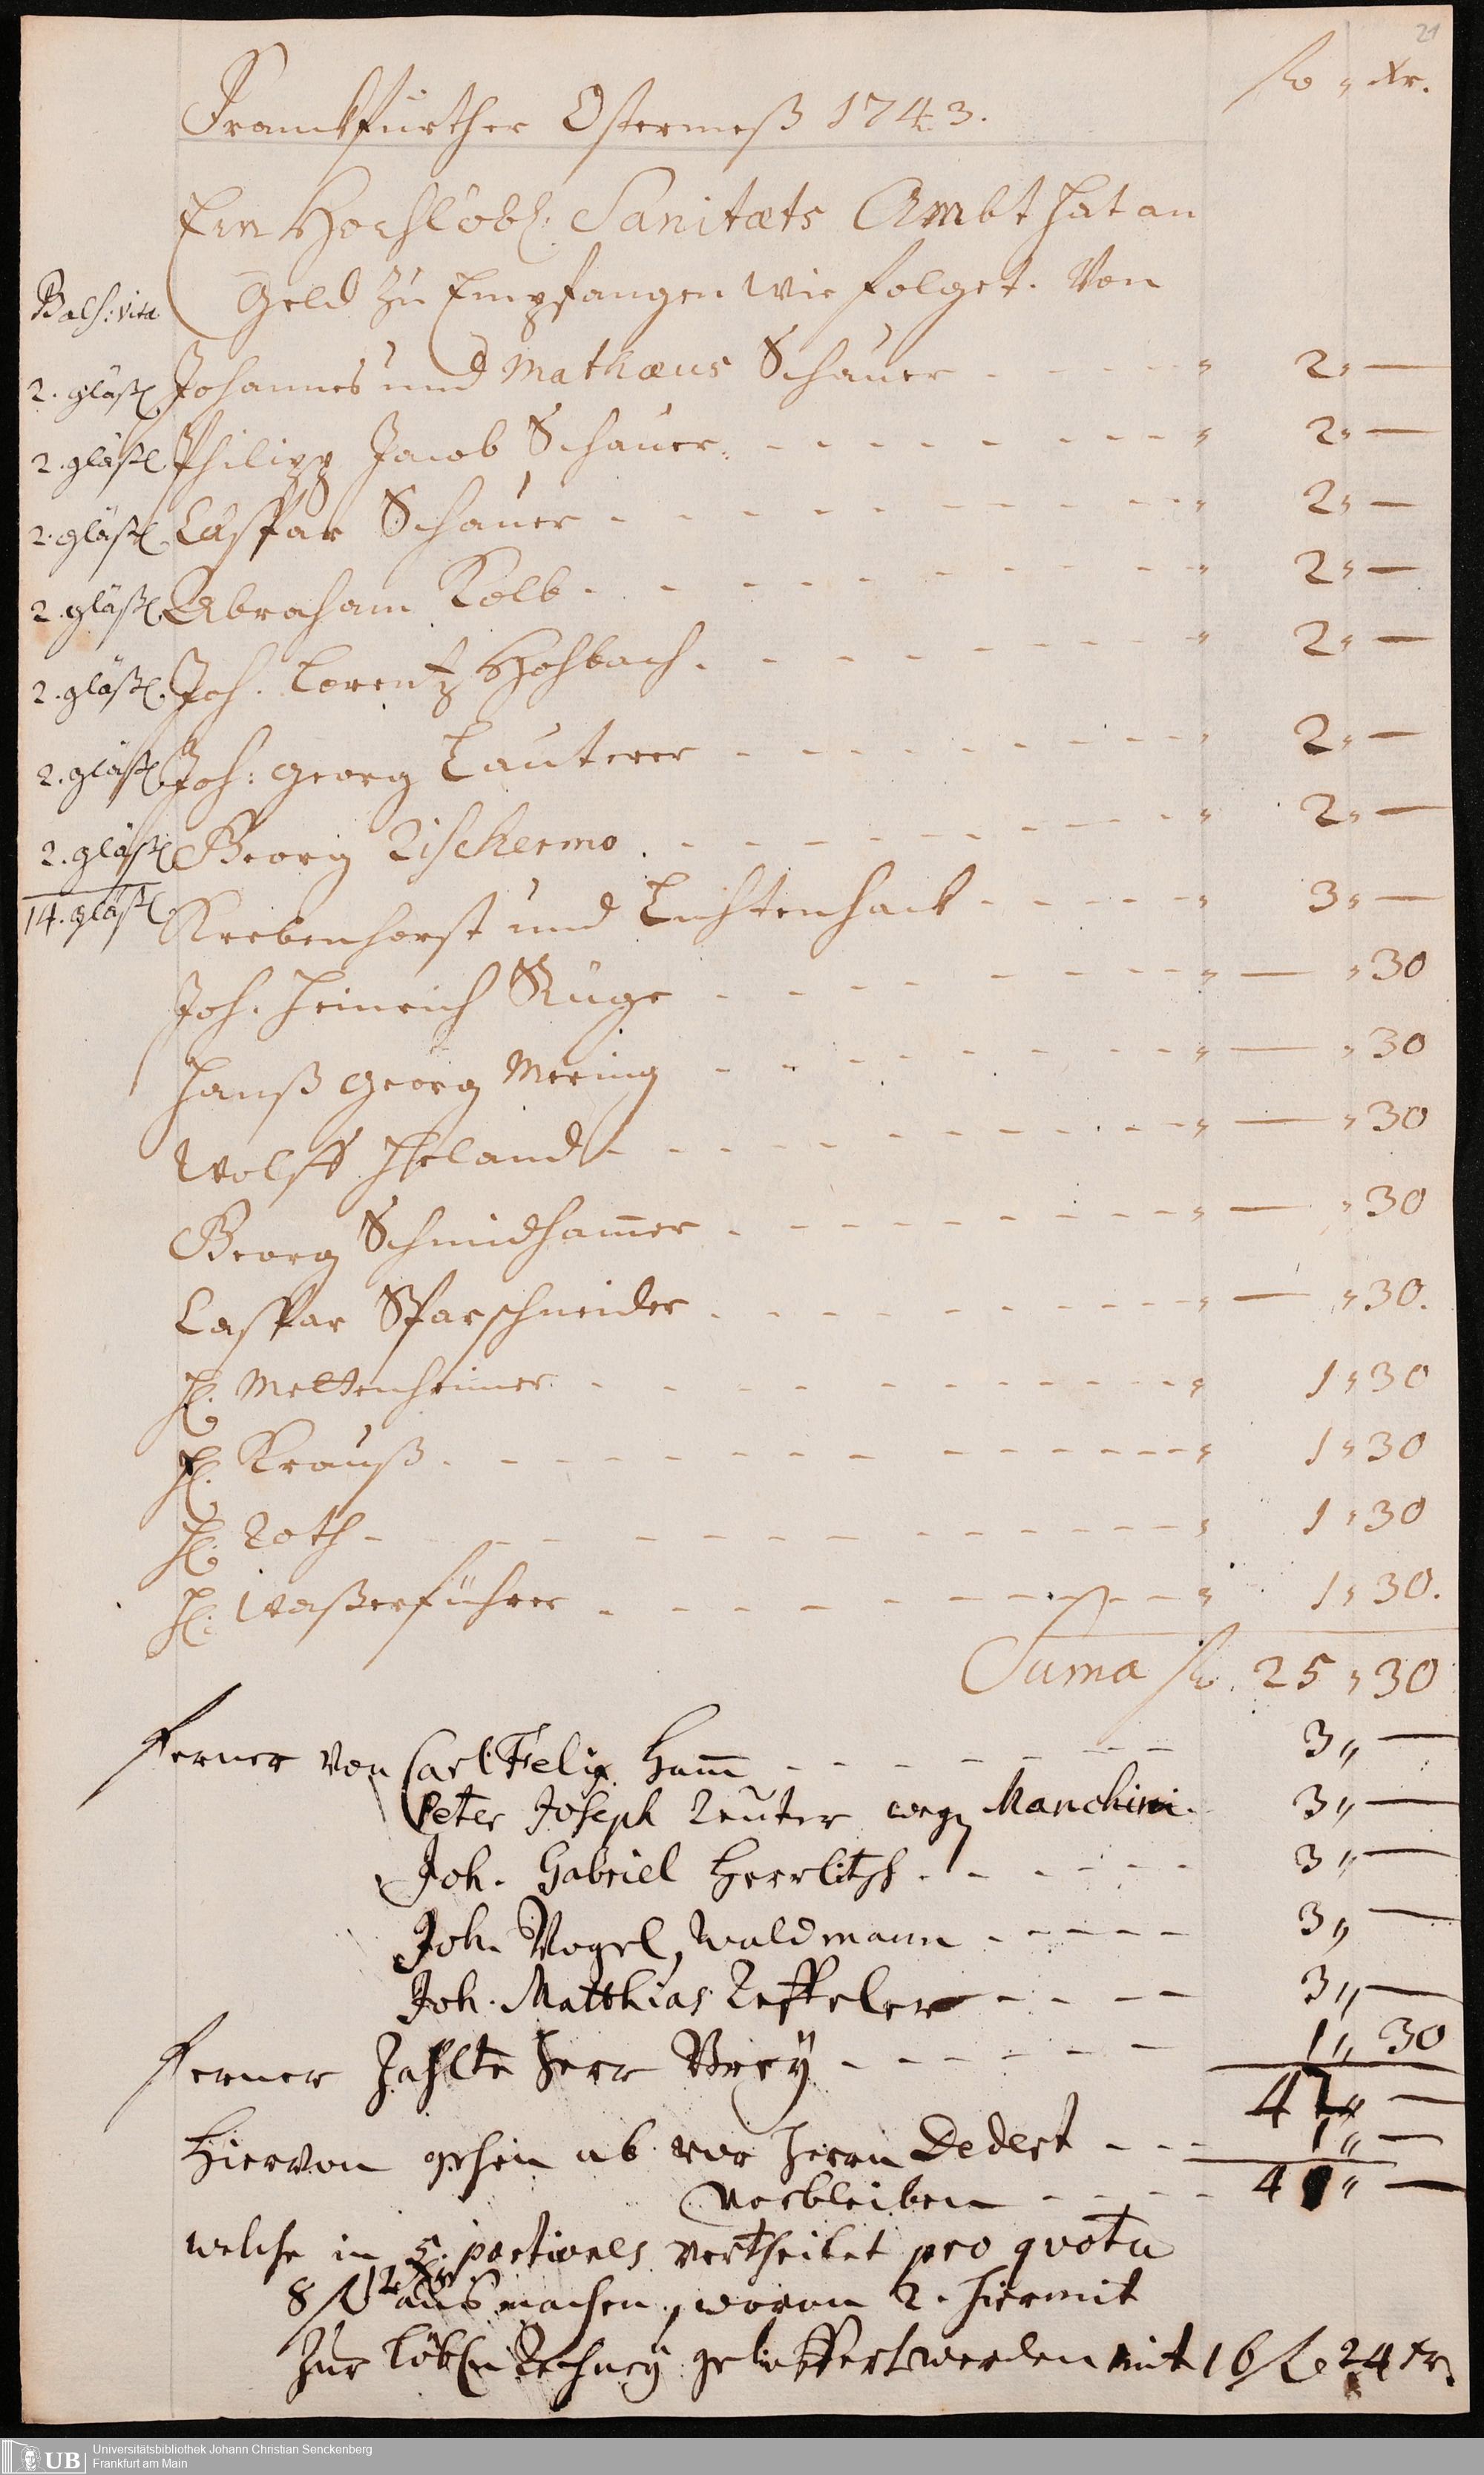 21
fl " Xr.
Franckfurther Ostermeß 1743.
Ein Hochlöbl. Sanitæts Ambt hat an
Geld zu Empfangen wie folget. Von
Bals: vitæ
2. gläßl. Johannes und Mathæus Schauer - - - - " 2" —
2. gläßl. Philipp Jacob Schauer. - - - - - - - - " 2" —
2. gläßl. Caspar Schauer - - - - - - - - - - " 2" —
2. gläßl. Abraham Kolb - - - - - - - - - " 2" —
2. gläßl. Joh. Lorentz Hohbach. - - - - - - - " 2" —
2. gläßl. Joh: Georg Lauterer - - - - - - - - " 2" —
2. gläßl. Georg Zischermo - - - - - - - - " 2" —
14. gläßl.
Krebenhorst und Lichtenhack - - - - - " 3" —
Joh. Heinrich Kluge - - - - - - - - " — " 30
Hanß Georg Mering - - - - - - - - " — " 30
Wolff Heland - - - - - - - - - - " — " 30
Georg Schmidhamer - - - - - - - - " — " 30
Caspar Sparschneider - - - - - - - - - " — " 30.
H. Mettenheimer - - - - - - - - - - " 1 " 30
H. Krauß - - - - - - - - - - - - " 1 " 30
H. Roth - - - - - - - - - - - - " 1 " 30
H. Waßerführer - - - - - - - - - " 1 " 30.
Suma fl. 25 " 30
Ferner von Carl Felix Ham - - - - - - - 3 " —
Peter Joseph Reuter weg Manchini. 3 " —
Joh. Gabriel Herrlitzh - - - - - - 3 " —
Joh. Vogel, Waldmann - - - - - 3 "  —
Joh. Matthias Zeffeler - - - - 3 " —
Ferner Zahlte Herr Brey - - - - - - 1 " 30
42 " —
Hiervon gehen ab vor Herrn Dedert - - - 1 " —
Verbleiben - - - - 41 " —
welche in 5. portiones vertheilet pro quota
8 fl 12 Xr ausmachen, wovon 2. hiermit
Zur löbln Rechney geliffert werden mit 16 fl 24 Xr.
UB Universitätsbibliothek Johann Christian Senckenberg
Frankfurt am Main